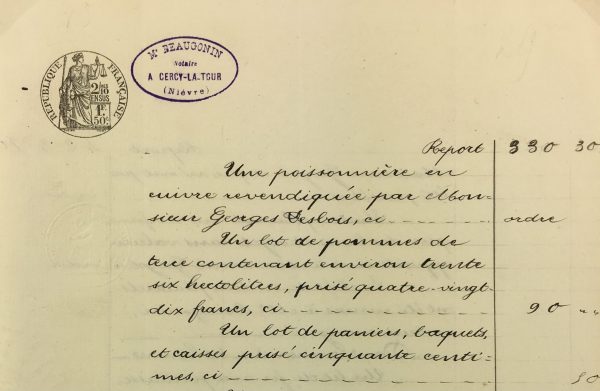 RÉPUBLIQUE FRANÇAISE
2/10 EN SUS
1F 50c
Me BEAUGONIN
Notaire
A CERCY-LA-TOUR
(Nièvre)
Report 330 30
Une poissonnière en
cuivre revendiquée par Mon-
sieur Georges Desbois, ci ordre
Un lot de pommes de
terre contenant environ trente
six hectolitres, prisé quatre-vingt
dix francs, ci 90 "
Un lot de paniers, baquets,
et caisses prisé cinquante centi-
mes, ci 50